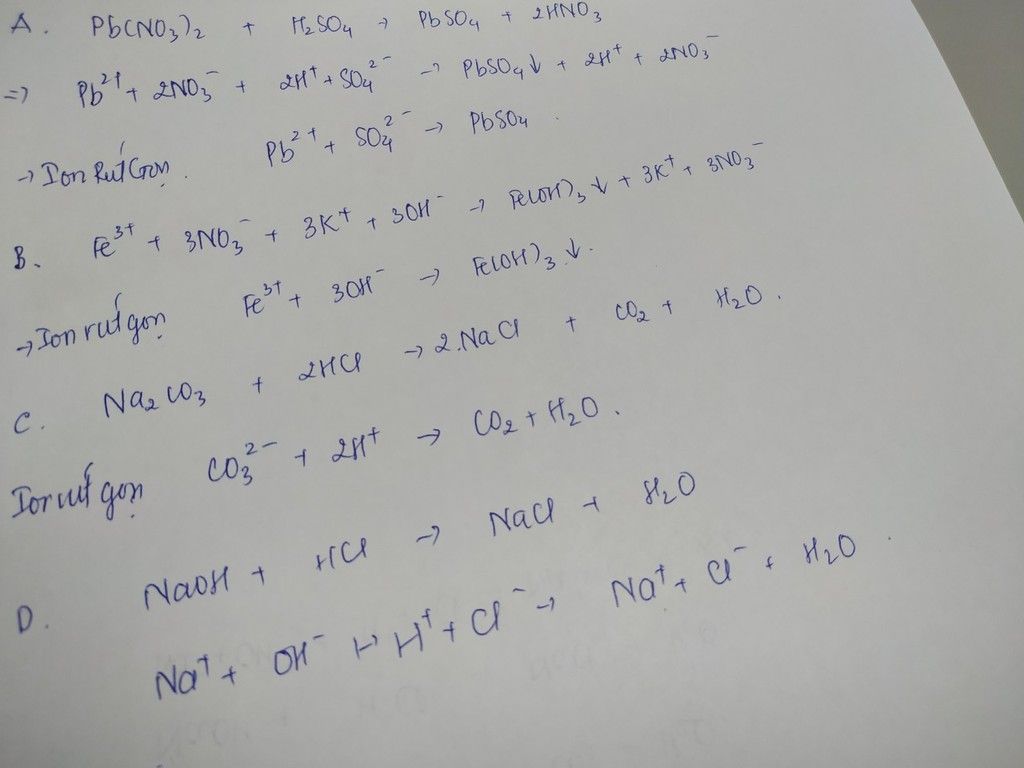 A. Pb(NO3)2 + H2SO4 → PbSO4 + 2HNO3
=> Pb²⁺ + 2NO3⁻ + 2H⁺ + SO4²⁻ → PbSO4↓ + 2H⁺ + 2NO3⁻
→ Ion Rút Gọn. Pb²⁺ + SO4²⁻ → PbSO4.
B. Fe³⁺ + 3NO3⁻ + 3K⁺ + 3OH⁻ → Fe(OH)3↓ + 3K⁺ + 3NO3⁻
→ Ion rút gọn Fe³⁺ + 3OH⁻ → Fe(OH)3↓.
C. Na2CO3 + 2HCl → 2.NaCl + CO2 + H2O.
Ion rút gọn CO3²⁻ + 2H⁺ → CO2 + H2O.
D. NaOH + HCl → NaCl + H2O
Na⁺ + OH⁻ + H⁺ + Cl⁻ → Na⁺ + Cl⁻ + H2O